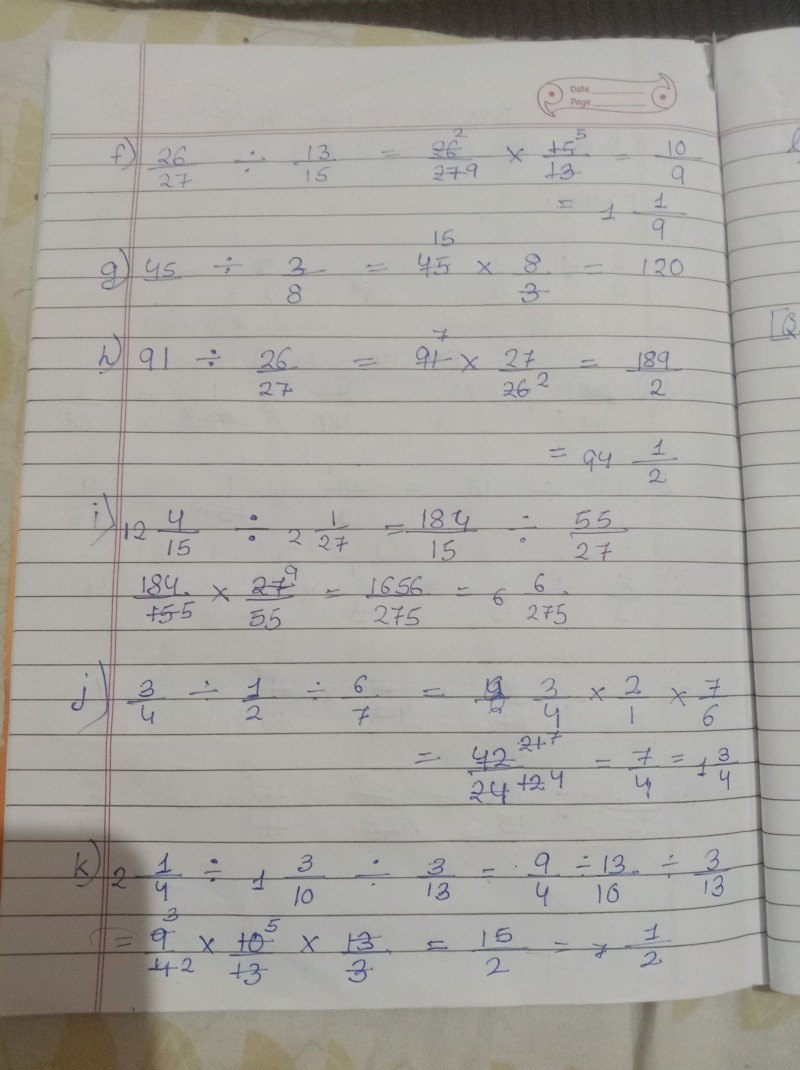 Date
Page
f) 26/27 ÷ 13/15 = 26 2/27 9 × 15 5/13 = 10/9
= 1 1/9
g) 45 ÷ 3/8 = 45 15 × 8/3 = 120
h) 91 ÷ 26/27 = 91 7 × 27/26 2 = 189/2
= 94 1/2
i) 12 4/15 ÷ 2 1/27 = 184/15 ÷ 55/27
184/15 5 × 27 9/55 = 1656/275 = 6 6/275
j) 3/4 ÷ 1/2 ÷ 6/7 = 3/4 × 2/1 × 7/6
= 42 21 7/24 12 4 = 7/4 = 1 3/4
k) 2 1/4 ÷ 1 3/10 ÷ 3/13 = 9/4 ÷ 13/10 ÷ 3/13
= 9 3/4 2 × 10 5/13 × 13/3 = 15/2 = 7 1/2